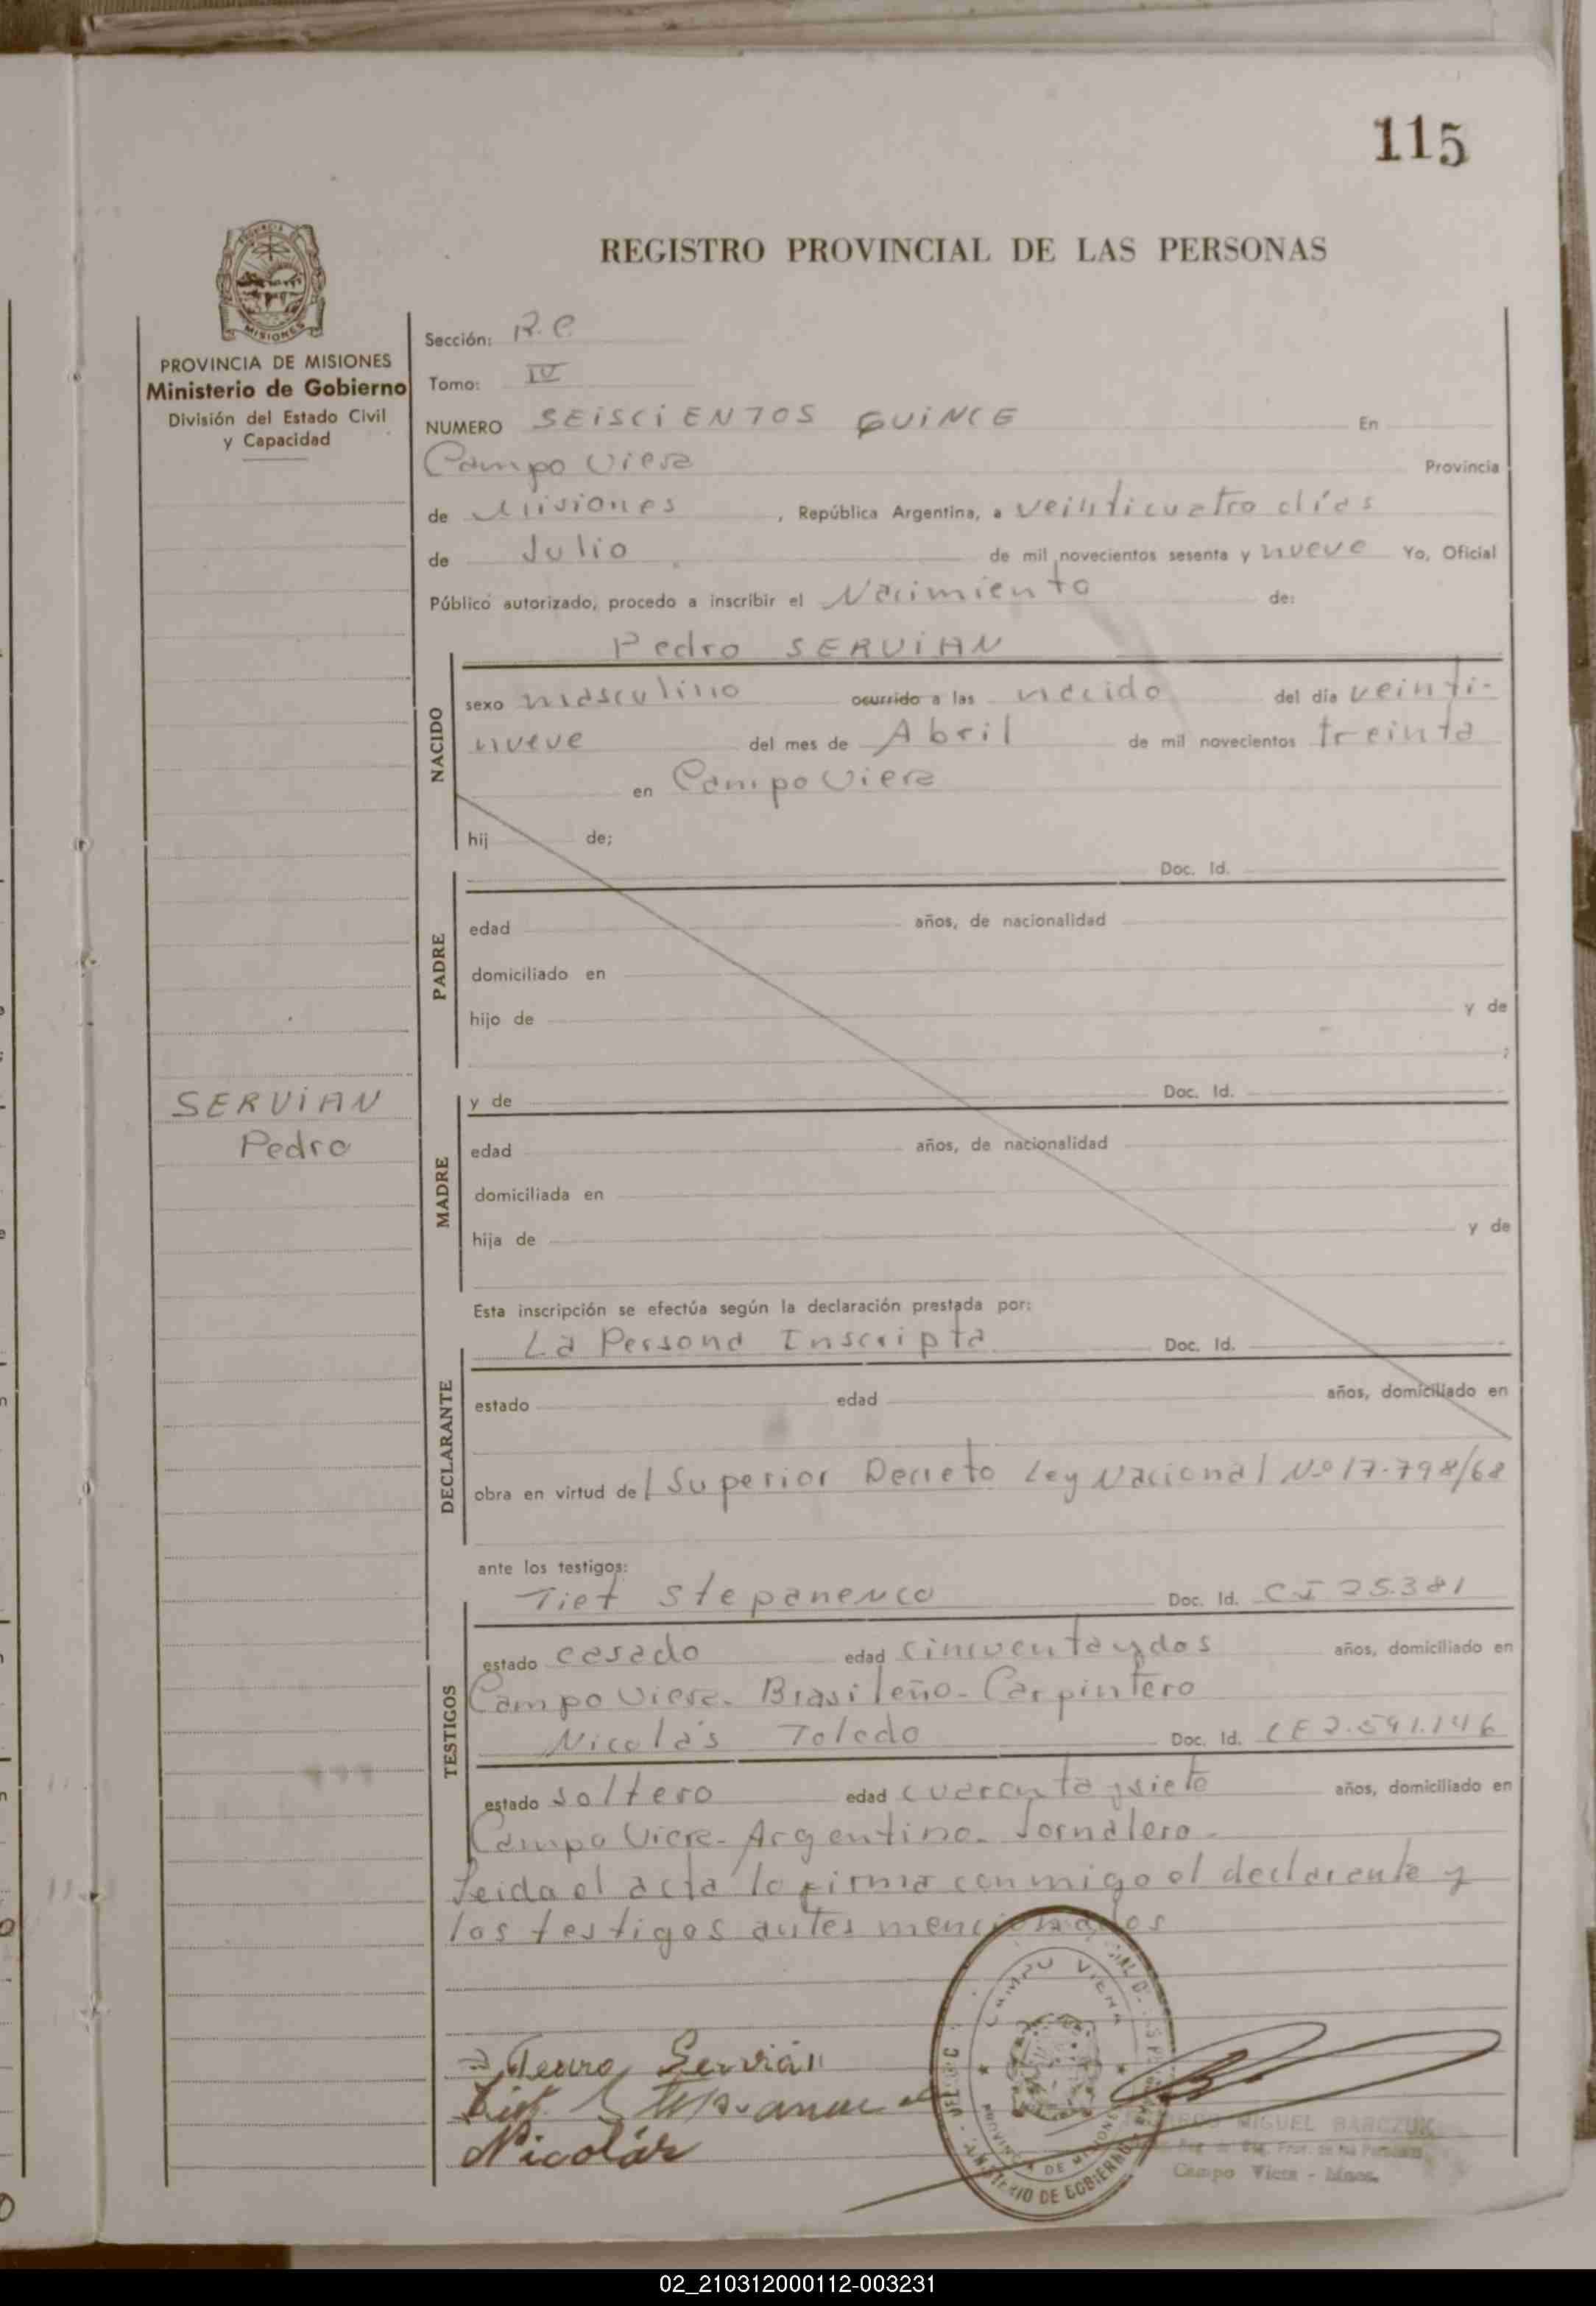 115
REGISTRO PROVINCIAL DE LAS PERSONAS
PROVINCIA DE MISIONES
Ministerio de Gobierno
División del Estado Civil
y Capacidad
Sección: R.C
Tomo: IV
NUMERO SEISCIENTOS QUINCE En
Campo Viera Provincia
de Misiones , República Argentina, a veinticuatro días
de Julio de mil novecientos sesenta y nueve Yo, Oficial
Público autorizado, procedo a inscribir el Nacimiento de:
Pedro SERVIAN
NACIDO
sexo masculino ocurrido a las nacido del día veinti-
nueve del mes de Abril de mil novecientos treinta
en Campo Viera
hij de;
PADRE
Doc. Id.
edad años, de nacionalidad
domiciliado en
hijo de y de
;
SERVIAN
Pedro
MADRE
y de Doc. Id.
edad años, de nacionalidad
domiciliada en
hija de y de
Esta inscripción se efectúa según la declaración prestada por:
La Persona Inscripta Doc. Id.
DECLARANTE
estado edad años, domiciliado en
obra en virtud del Superior Decreto Ley Nacional Nº 17.798/68
ante los testigos:
Tiet Stepanenco Doc. Id. C I 25.381
TESTIGOS
estado casado edad cincuentaydos años, domiciliado en
Campo Viera- Brasileño- Carpintero
Nicolás Toledo Doc. Id. LE 2.591.146
estado soltero edad cuarentaysiete años, domiciliado en
Campo Viera- Argentino- Jornalero-
Leida el acta lo firma conmigo el declarante y
los testigos antes mencionados
Servián
Nicolás
CAMPO VIERA
PROVINCIA DE MISIONES
MINISTERIO DE GOBIERNO
MIGUEL BARCZUK
Campo Viera - Mnes.
02_210312000112-003231